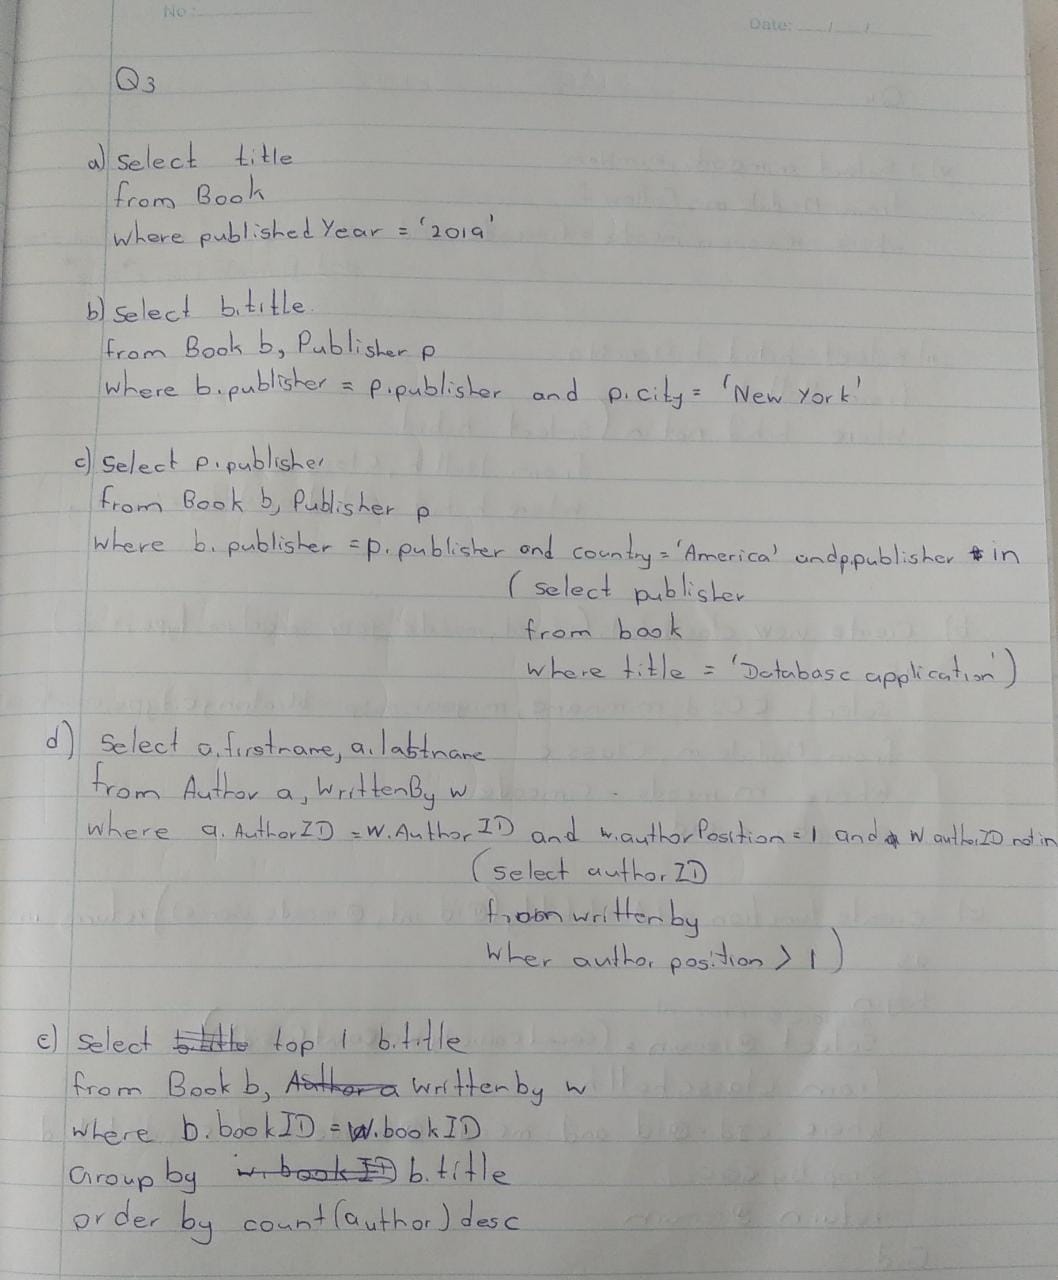 No:
Date: / /
Q3
a) Select title
from Book
where published Year = '2019'
b) Select b.title
from Book b, Publisher p
where b.publisher = p.publisher and p.city = 'New York'
c) Select p.publisher
from Book b, Publisher p
where b.publisher = p.publisher and country = 'America' and p.publisher in
(select publisher
from book
where title = 'Database application')
d) Select a.firstname, a.lastname
from Author a, WrittenBy w
where a.AuthorID = w.AuthorID and w.authorPosition = 1 and w.authorID not in
(select authorID
from writtenby
wher author position > 1)
e) Select top 1 b.title
from Book b, writtenby w
where b.bookID = w.bookID
Group by b.title
order by count(author) desc